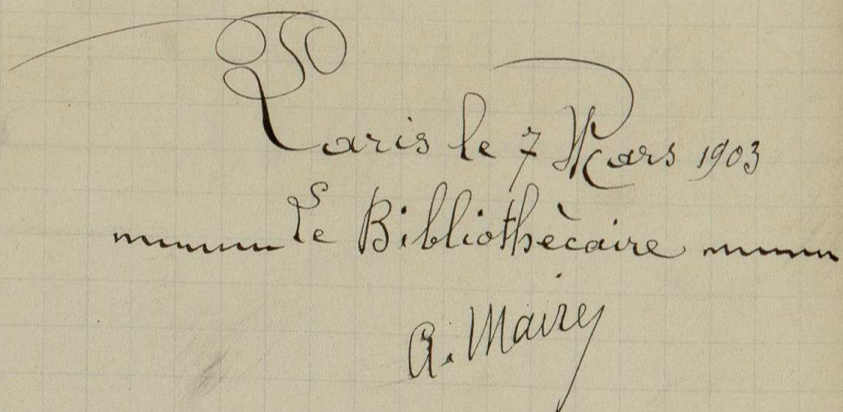 Paris le 7 Mars 1903
Le Bibliothècaire
A. Maire